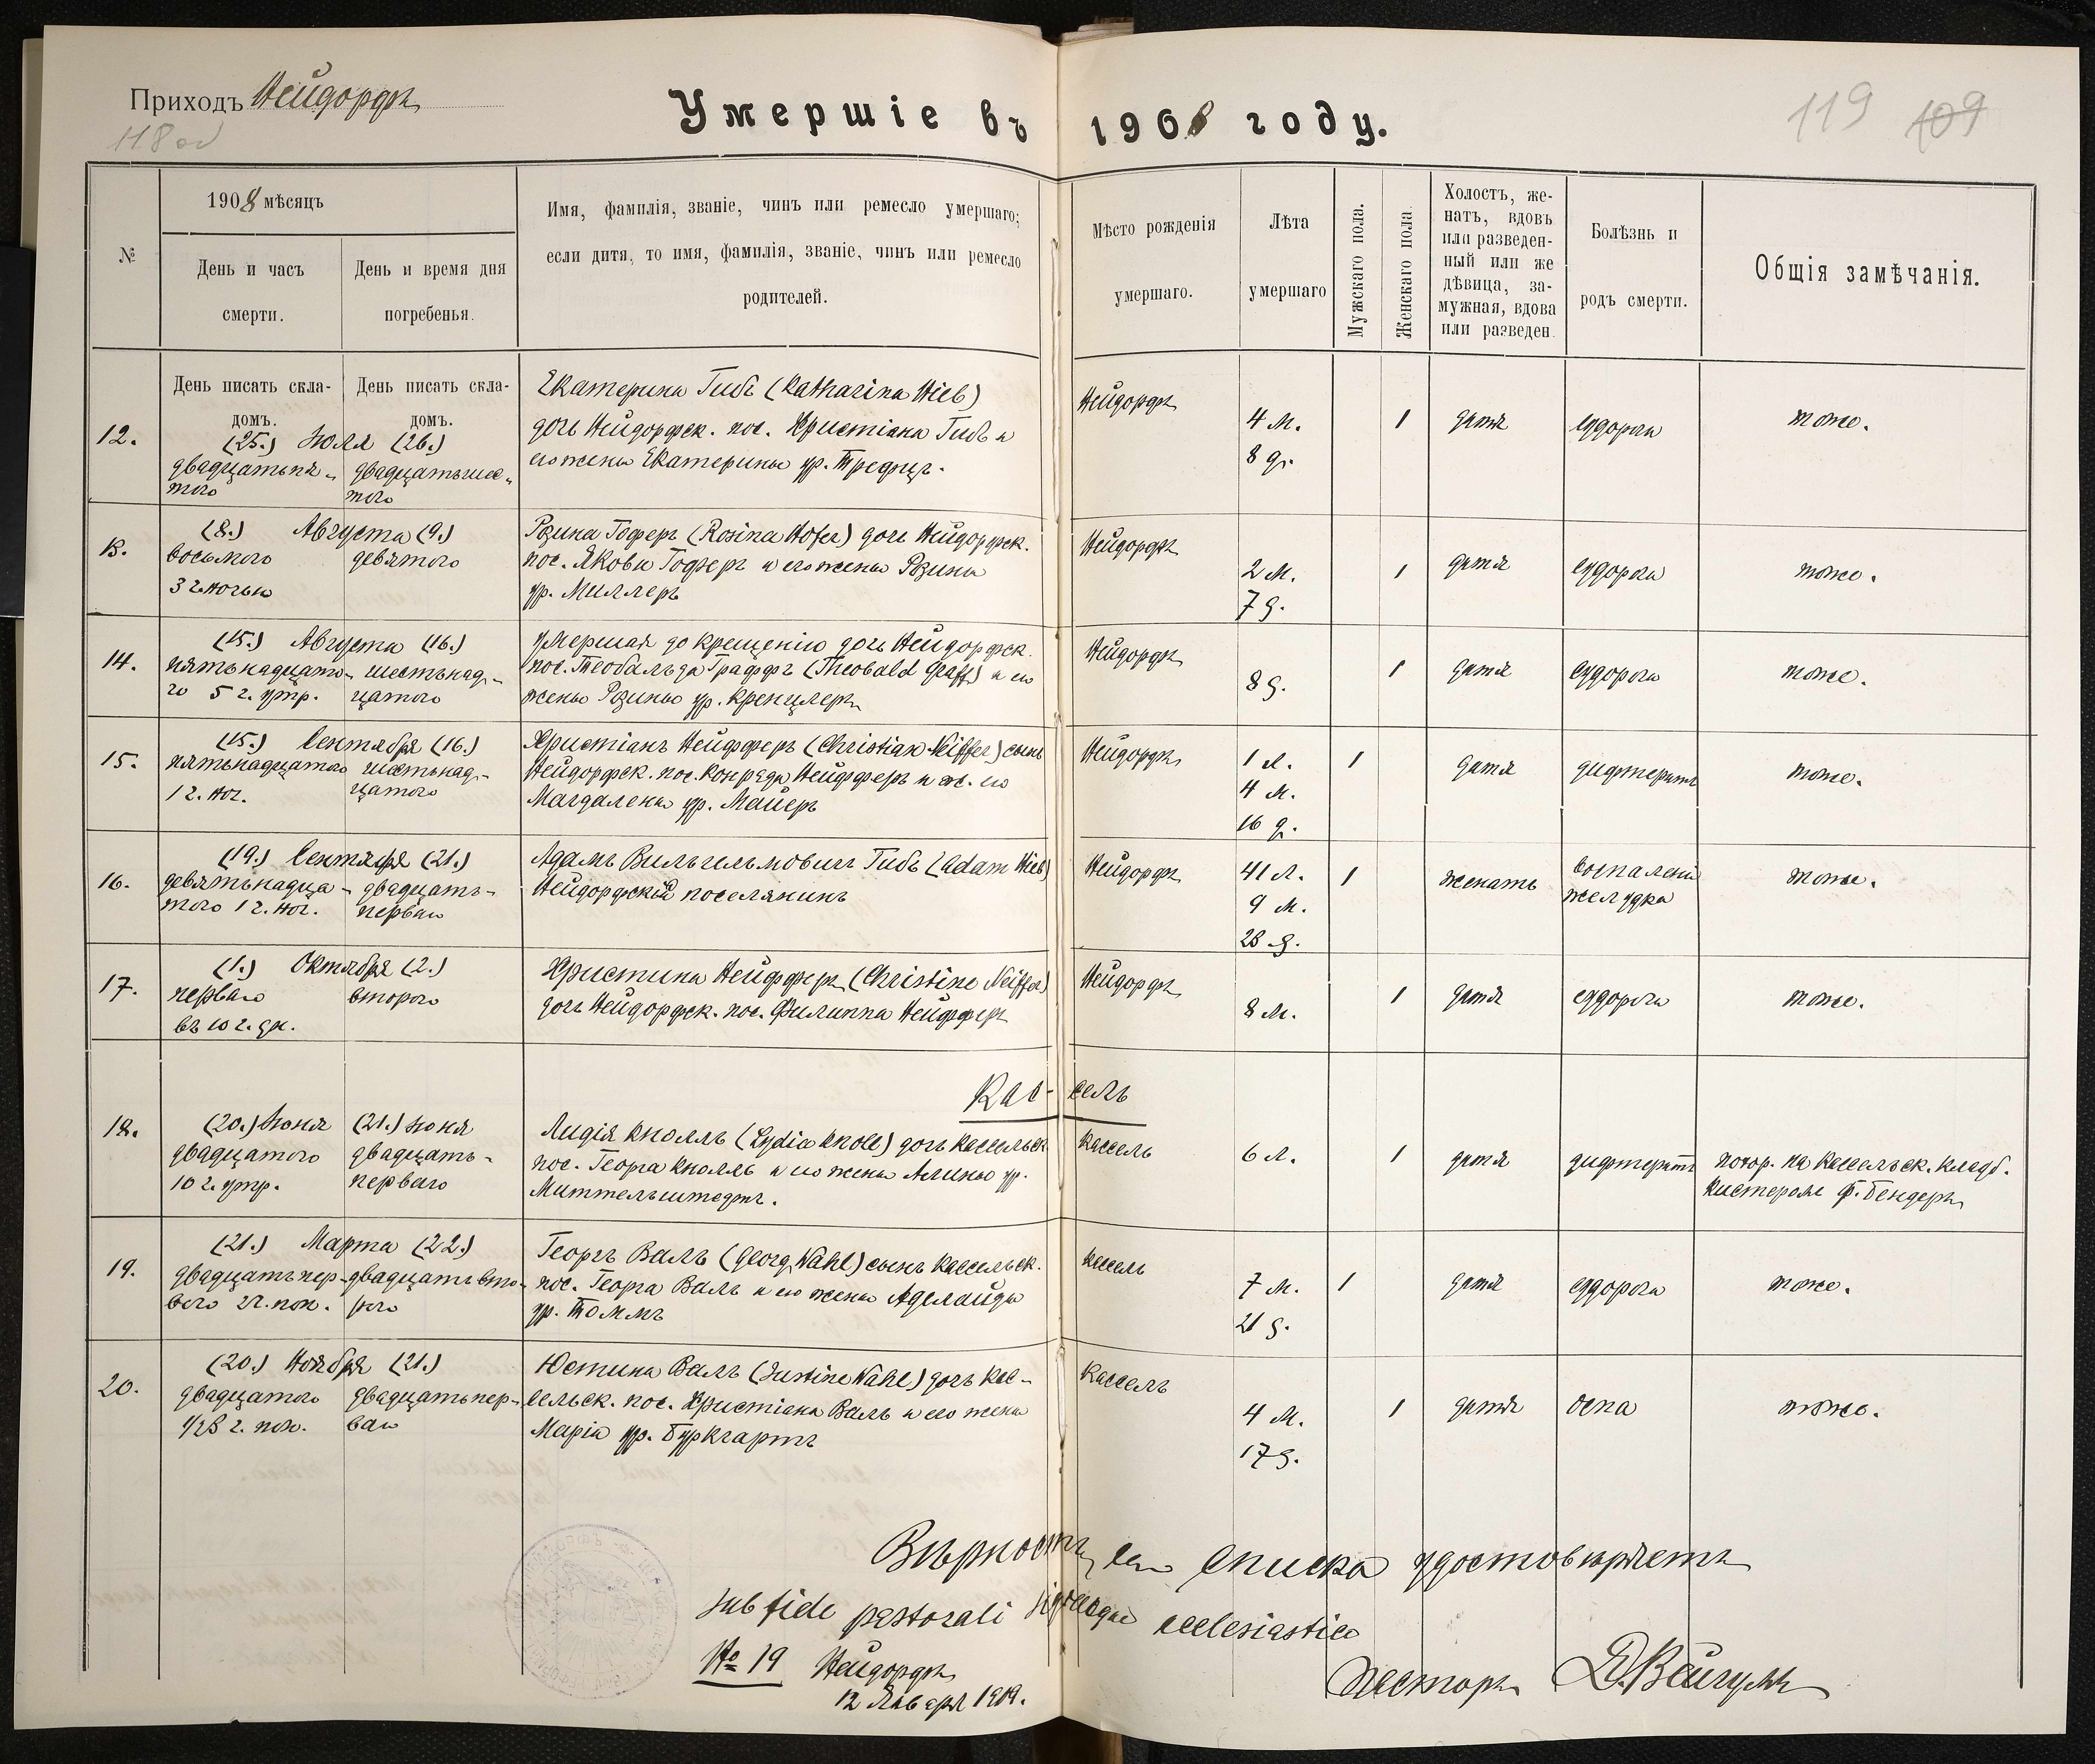 Приходъ Нейдорфъ
118 об
Умершіе въ 1908 году.
119 109
№
1908 мѣсяцъ
День и часъ
смерти.
День и время дня
погребенья.
Имя, фамилія, званіе, чинъ или ремесло умершаго;
если дитя, то имя, фамилія, званіе, чинъ или ремесло
родителей.
Мѣсто рожденія
умершаго.
Лѣта
умершаго
Мужскаго пола.
Женскаго пола.
Холостъ, же-
натъ, вдовъ
или разведен-
ный или же
дѣвица, за-
мужная, вдова
или разведен.
Болѣзнь и
родъ смерти.
Общія замѣчанія.
День писать скла-
домъ.
День писать скла-
домъ.
12.
(25.) Іюля (26.)
двадцатьпя-
того
двадцатьшес-
того
Екатерина Гибъ (Katharina Hieb)
дочь Нейдорфск. пос. Христіана Гибъ и
его жены Екатерины ур.
Нейдорфъ
4 м.
8 д.
1
дитя
судорога
тоже.
13.
(8.) Августа (9.)
восьмого
3 ч. ночью
девятого
Розина Гоферъ (Rosina Hofer) дочь Нейдорфск.
пос. Якова Гоферъ и его жены Розины
ур. Миллеръ
Нейдорфъ
2 м.
7 д.
1
дитя
судорога
тоже.
14.
(15.) Августа (16.)
пятьнадцато-
го 5 ч. утр.
шестьнад-
цатого
умершая до крещенію дочь Нейдорфск.
пос. Теобальда Граффъ (Theobald Graff) и его
жены Розины ур. Кренцлеръ
Нейдорфъ
8 д.
1
дитя
судорога
тоже.
15.
(15.) Сентября (16.)
пятьнадцатого
12. ноч.
шестьнад-
цатого
Христіанъ Нейфферъ (Christian Neiffer) сынъ
Нейдорфск. пос. Конрада Нейфферъ и ж. его
Магдалены ур. Майеръ
Нейдорфъ
1 л.
4 м.
16 д.
1
дитя
дифтеритъ
тоже.
16.
(19.) Сентября (21.)
девятьнадца-
того 12. ноч.
двадцать-
перваго
Адамъ Вильгельмовичъ Гибъ (Adam Hieb)
Нейдорфскій поселянинъ
Нейдорфъ
41 л.
9 м.
28 д.
1
женатъ
воспаленія
желудка
тоже.
17.
(1.) Октября (2.)
перваго
въ 10 ч. дн.
второго
Христина Нейфферъ (Christine Neiffer)
дочь Нейдорфск. пос. Филиппа Нейфферъ
Нейдорфъ
8 м.
1
дитя
судорога
тоже.
Кас-сель
18.
(20.) Іюня (21.) Іюня
двадцатого
10 ч. утр.
двадцать-
перваго
Лидія Кнолль (Lydia Knoll) дочь Кассельск.
пос. Георга Кнолль и его жены ур.
Миттельштедтъ.
Кассель
6 л.
1
дитя
дифтеритъ
похор. на Кассельск. кладб.
Кистеромъ Ф. Бендеръ
19.
(21.) Марта (22.)
двадцатьпер-
вого 2 ч. поп.
двадцатьвто-
рого
Георгъ Валь (Georg Wahl) сынъ Кассельск.
пос. Георга Валь и его жены Аделаиды
ур. Томмъ
Кассель
7 м.
21 д.
1
дитя
судорога
тоже.
20.
(20.) Ноября (21.)
двадцатого
1/28 ч. поп.
двадцатьпер-
ваго
Юстина Валь (Justine Wahl) дочь Кас-
сельск. пос. Христіана Валь и его жены
Маріи ур. Буркгартъ
Кассель
4 м.
17 д.
1
дитя
оспа
тоже.
Вѣрность сего списка удостовѣряетъ
sub fide pastorali sigilloque ecclesiastico
№ 19 Нейдорфъ
12 Января 1909.
Пасторъ